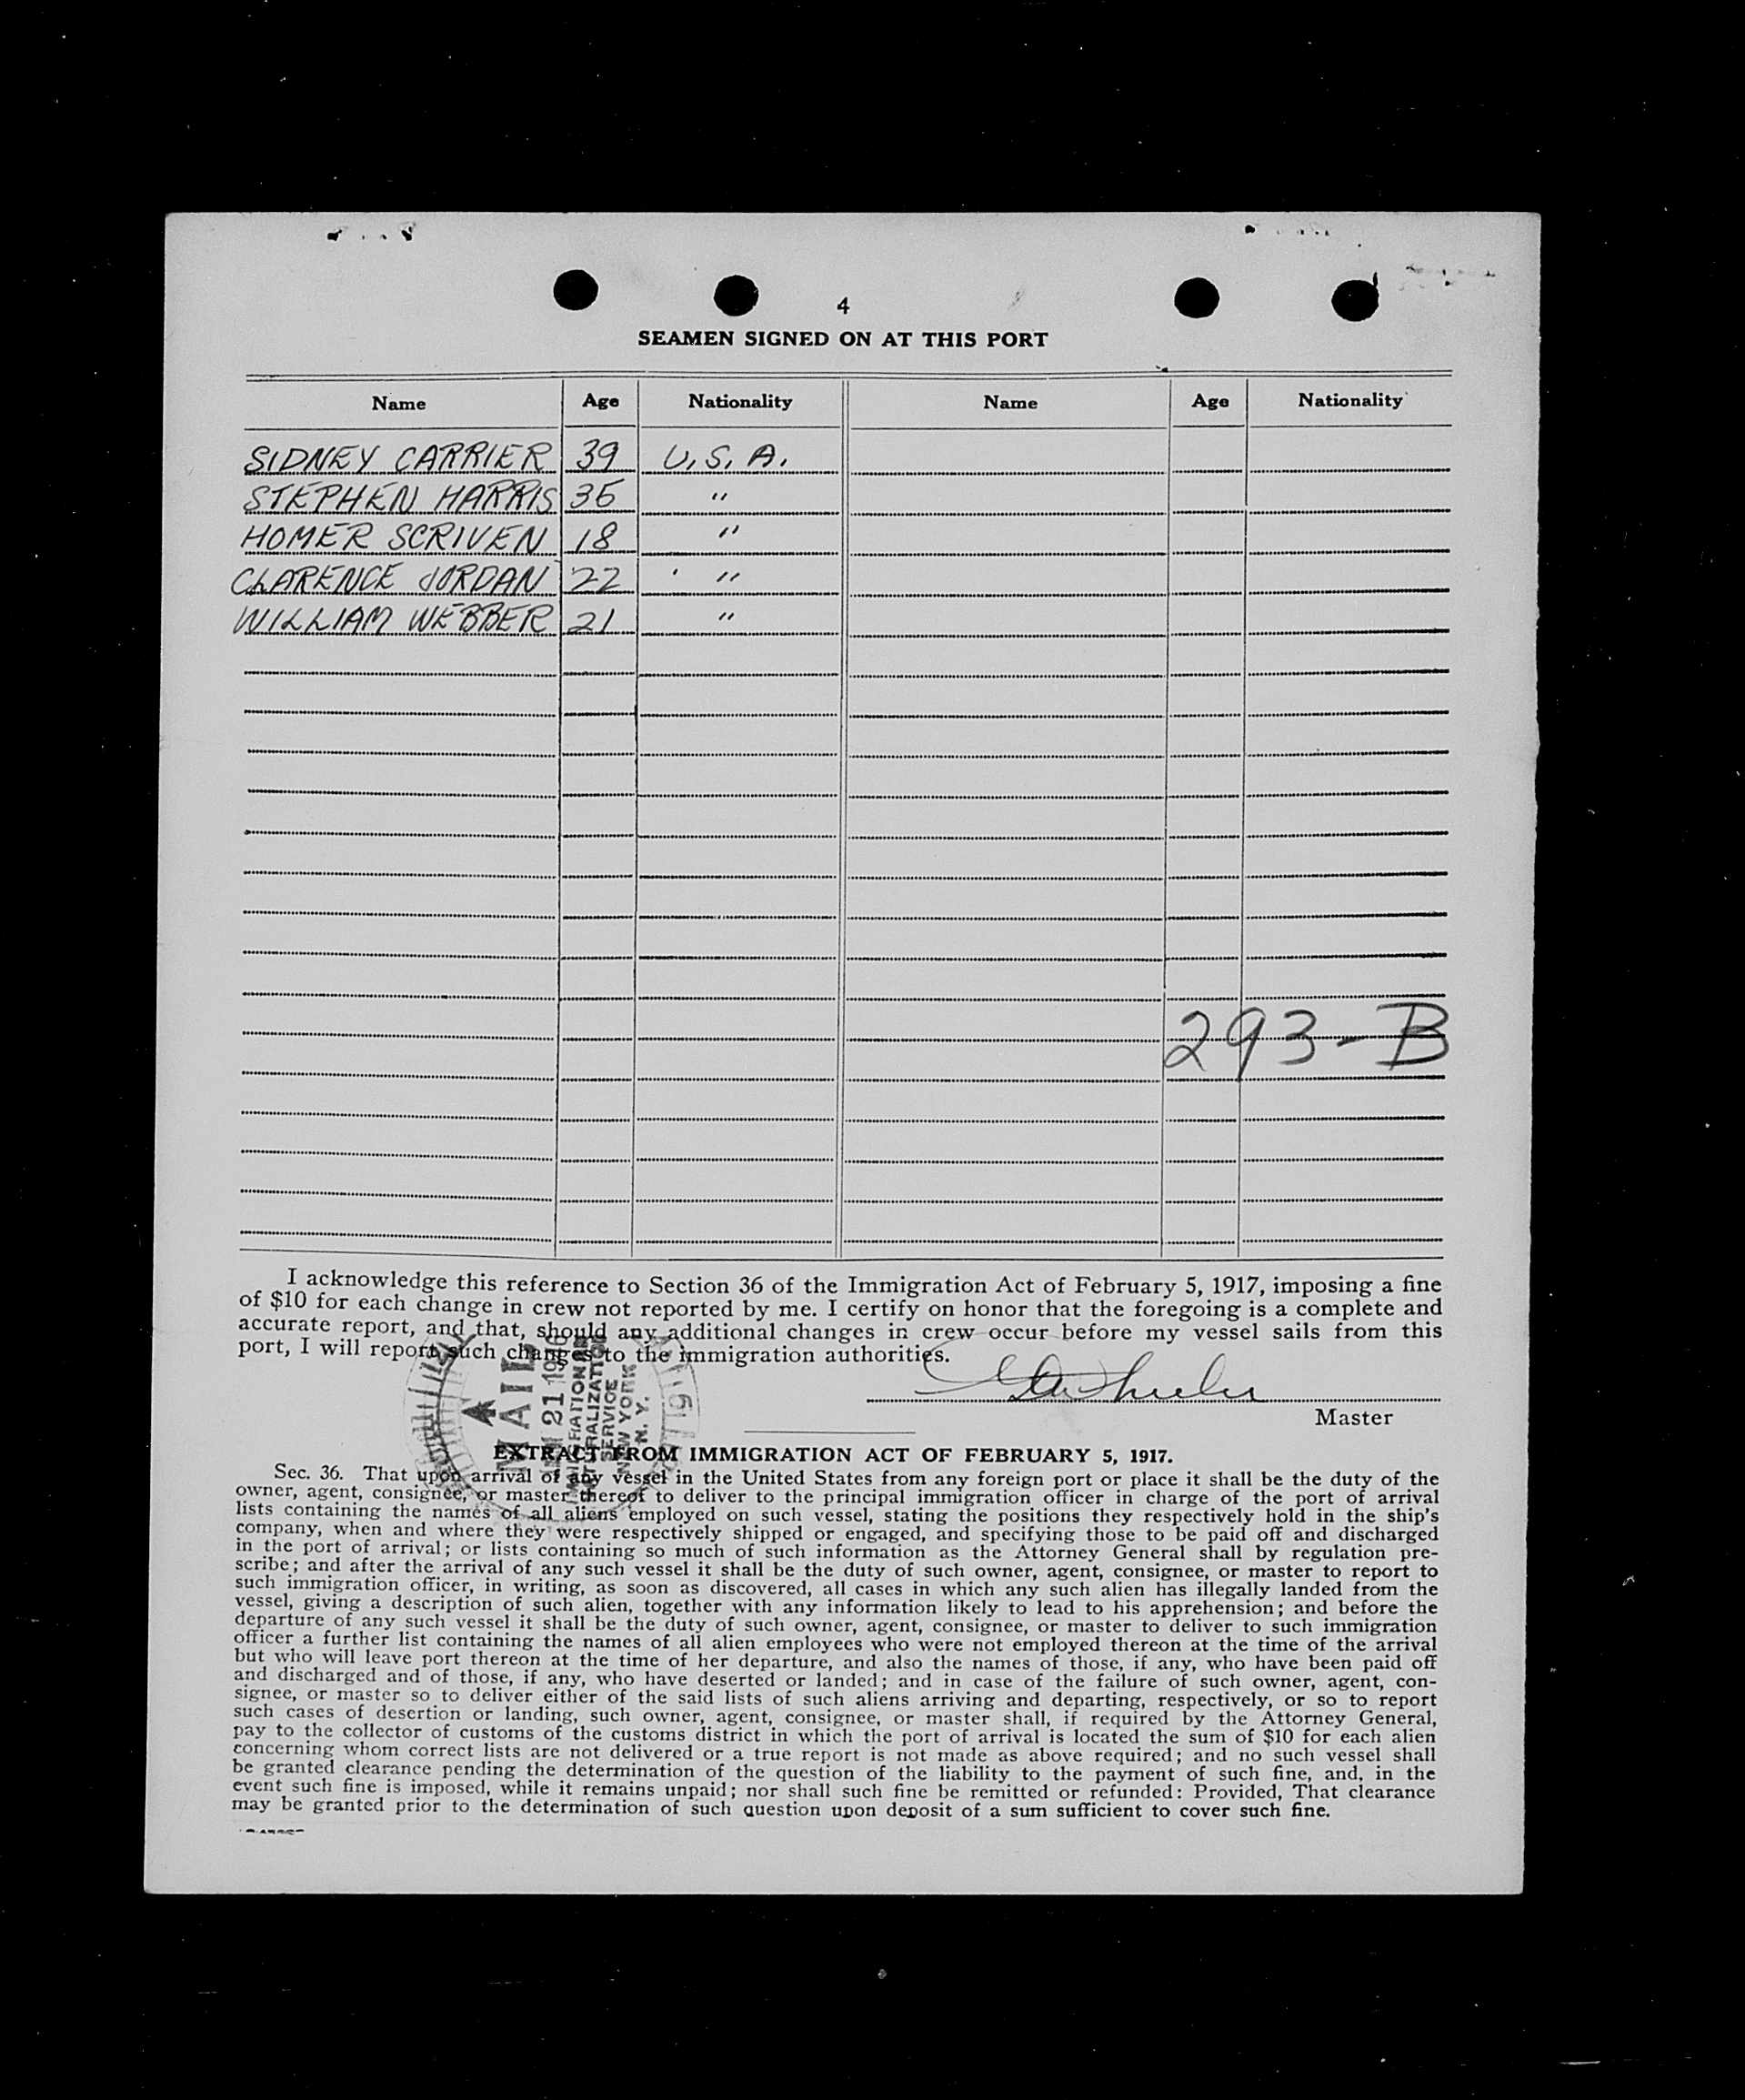 4
SEAMEN SIGNED ON AT THIS PORT
Name Age Nationality Name Age Nationality
SIDNEY CARRIER 39 U.S.A.
STEPHEN HARRIS 36 "
HOMER SCRIVEN 18 "
CLARENCE JORDAN 22 "
WILLIAM WEBBER 21 "
293-B
I acknowledge this reference to Section 36 of the Immigration Act of February 5, 1917, imposing a fine
of $10 for each change in crew not reported by me. I certify on honor that the foregoing is a complete and
accurate report, and that, should any additional changes in crew occur before my vessel sails from this
port, I will report such changes to the immigration authorities.
Master
MAIL
21
SERVICE
NEW YORK
N. Y.
EXTRACT FROM IMMIGRATION ACT OF FEBRUARY 5, 1917.
Sec. 36. That upon arrival of any vessel in the United States from any foreign port or place it shall be the duty of the
owner, agent, consignee, or master thereof to deliver to the principal immigration officer in charge of the port of arrival
lists containing the names of all aliens employed on such vessel, stating the positions they respectively hold in the ship's
company, when and where they were respectively shipped or engaged, and specifying those to be paid off and discharged
in the port of arrival; or lists containing so much of such information as the Attorney General shall by regulation pre-
scribe; and after the arrival of any such vessel it shall be the duty of such owner, agent, consignee, or master to report to
such immigration officer, in writing, as soon as discovered, all cases in which any such alien has illegally landed from the
vessel, giving a description of such alien, together with any information likely to lead to his apprehension; and before the
departure of any such vessel it shall be the duty of such owner, agent, consignee, or master to deliver to such immigration
officer a further list containing the names of all alien employees who were not employed thereon at the time of the arrival
but who will leave port thereon at the time of her departure, and also the names of those, if any, who have been paid off
and discharged and of those, if any, who have deserted or landed; and in case of the failure of such owner, agent, con-
signee, or master so to deliver either of the said lists of such aliens arriving and departing, respectively, or so to report
such cases of desertion or landing, such owner, agent, consignee, or master shall, if required by the Attorney General,
pay to the collector of customs of the customs district in which the port of arrival is located the sum of $10 for each alien
concerning whom correct lists are not delivered or a true report is not made as above required; and no such vessel shall
be granted clearance pending the determination of the question of the liability to the payment of such fine, and, in the
event such fine is imposed, while it remains unpaid; nor shall such fine be remitted or refunded: Provided, That clearance
may be granted prior to the determination of such question upon deposit of a sum sufficient to cover such fine.